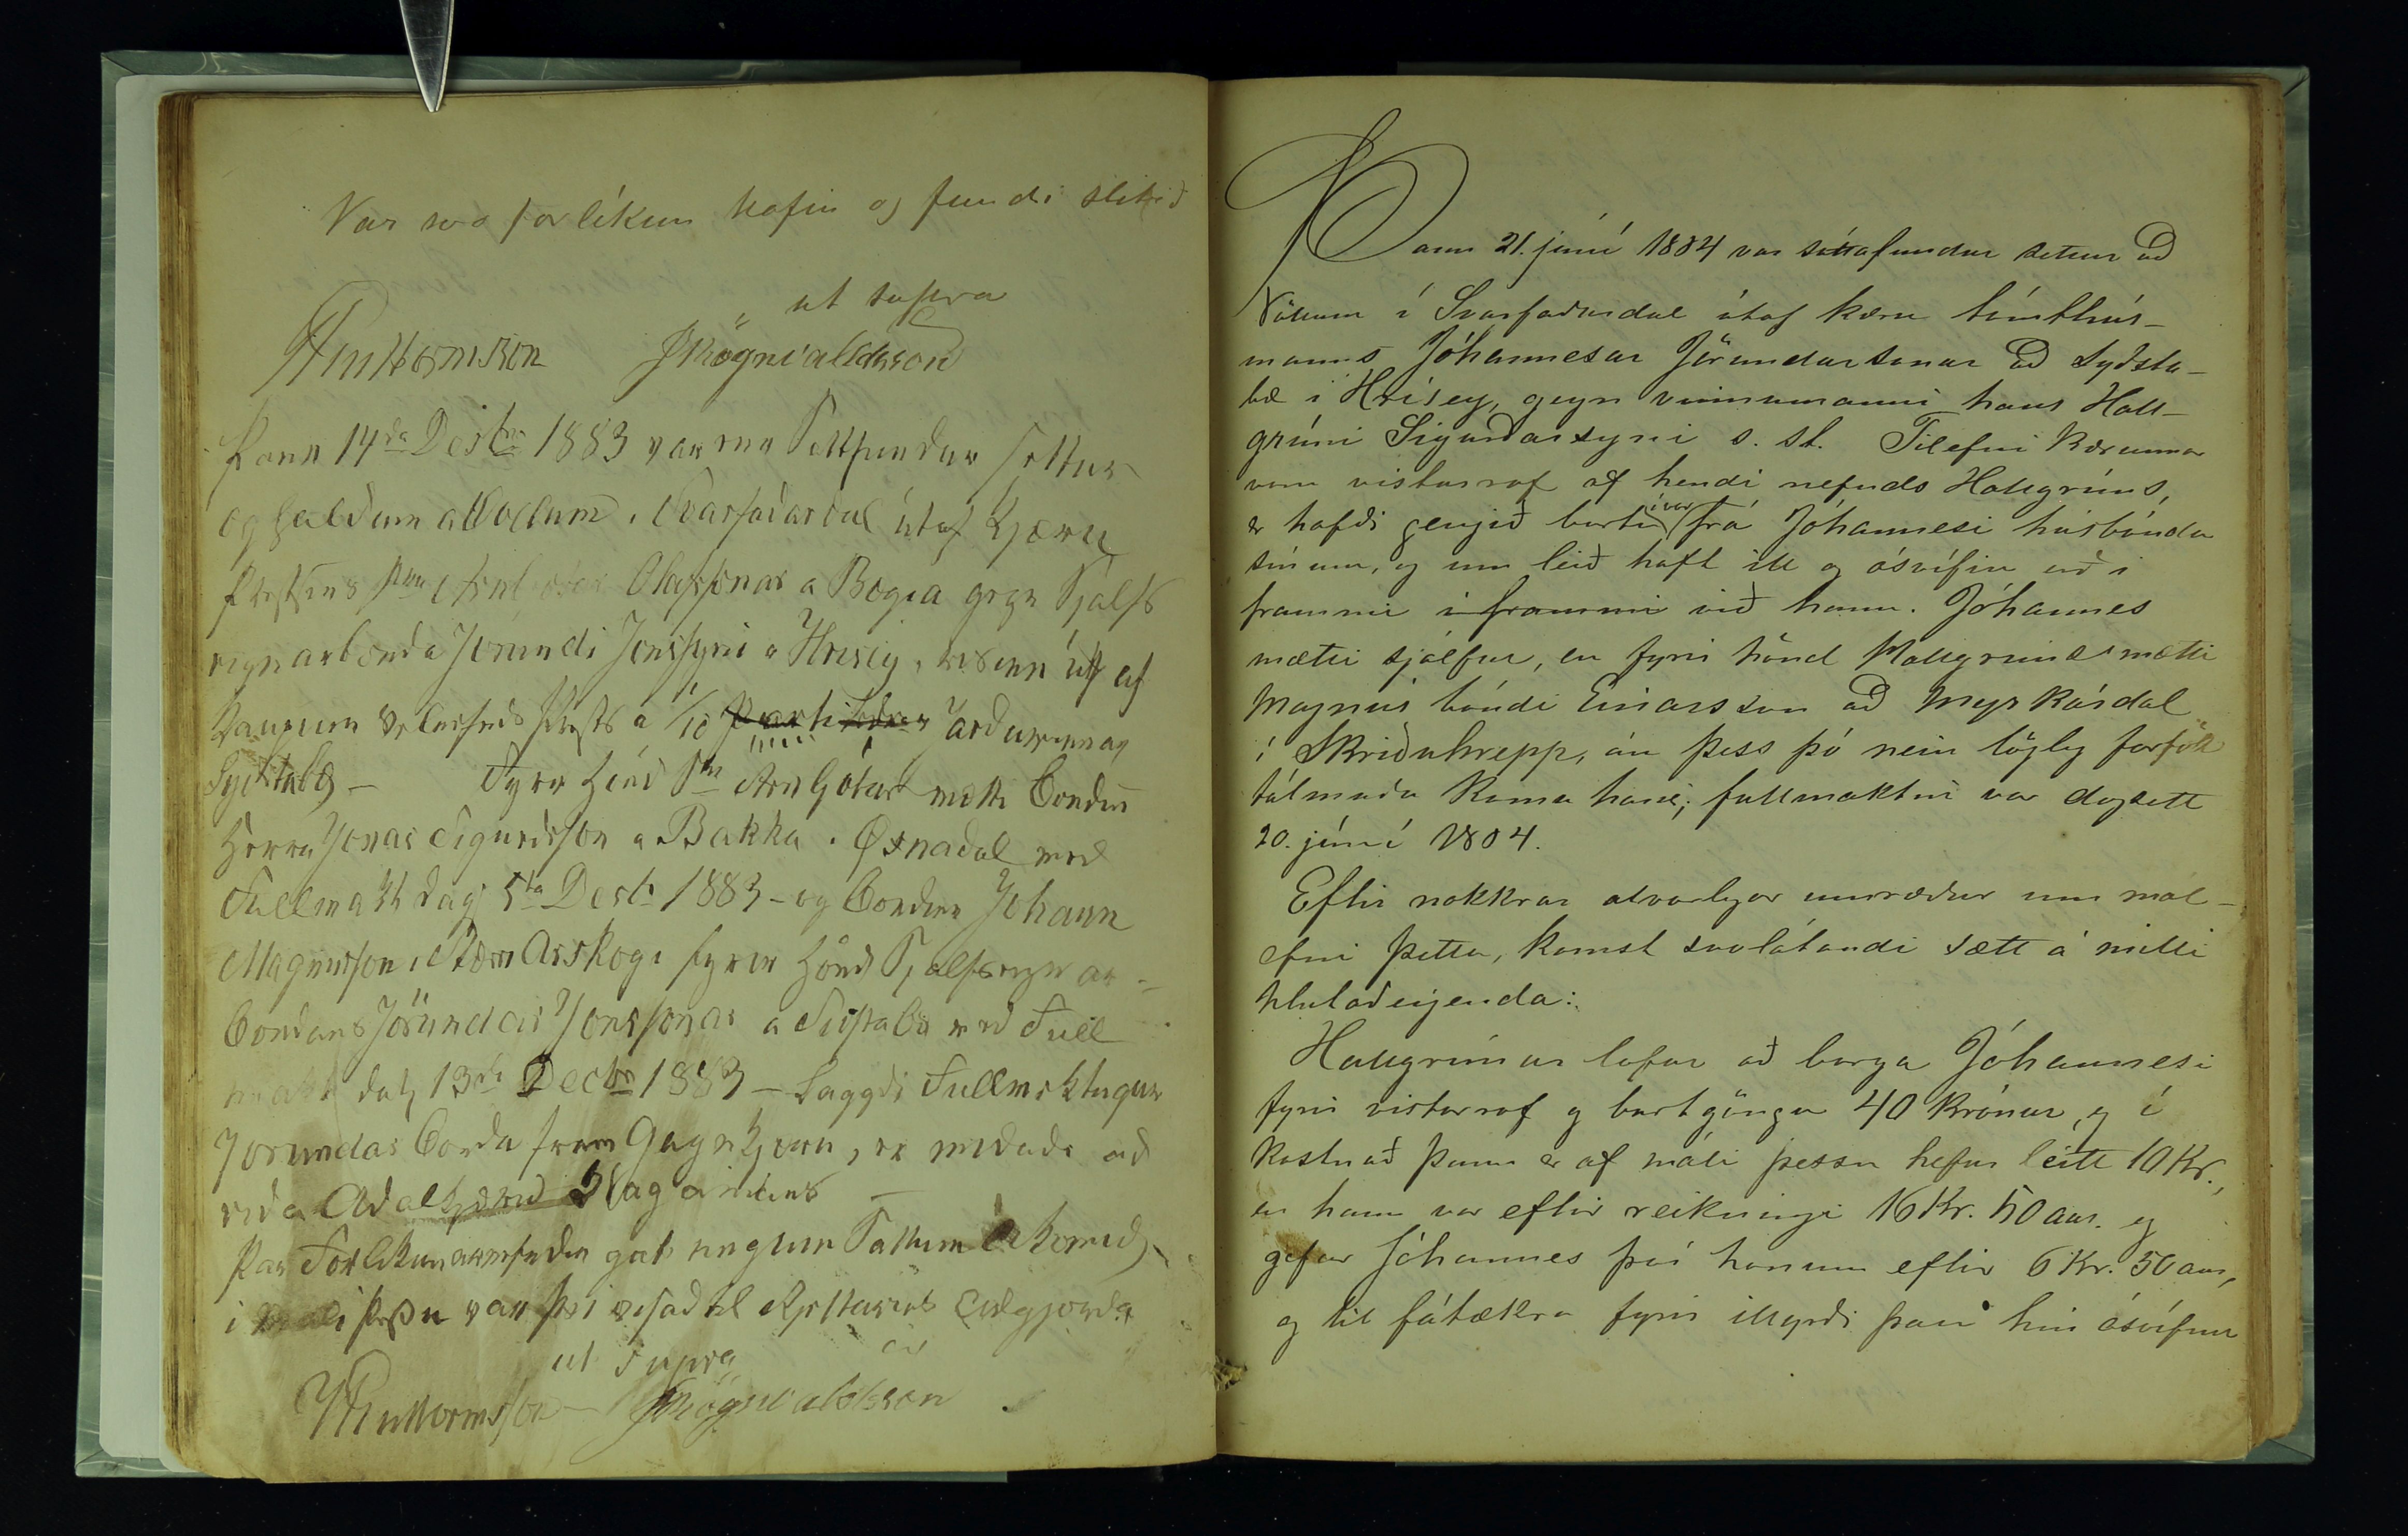 Var svo forlíkun hafin og fundi slitið
ut supra
JRögnvaldsson
Þann 14da Desbr 1883 var Sættfundur settur
og haldinn a Vollum i Svarfadardal útaf Kjæru
Prestsins Olafssonar a Bægisá gegn Sjálfs
eignarbonda Jörundi Jonssyni a Hrisey, útaf
kaupum Prests a 1/10 Jardarinnar
Sydstabæ – Fyrir hönd Sra Arnljótar mætti Bondinn
Herra Jonas Sigurdsson a Bakka i Øxnadal med
Fullmakt dags 5ta Desbr 1883 – og Bondinn Johann
Magnusson i Stærri Arskogi fyrir hönd Sjálfseignar-
Bondans Jörundar Jonssonar a Sydstabæ med Full
makt dags 13da Decbr 1883 – Lagði Fullmektugur
Jorundar Bonda fram Gagnkjæru, er midadi ad
Adalkjærud
Þar Forlikunarnefndin gat eingum Sættum Akomid,
i mali þessu var þvi visad til Rjettarins adgjorda
ut supra
JRögnvaldsson
Þann 21. júní 1884 var sáttafundur settur að
Völlum í Svarfaðardal útaf kæru tómthús-
manns Jóhannesar Jörundarsonar að Syðsta-
bæ í Hrísey, gegn vinnumanni hans Hall-
grími Sigurðarsyni s. st. Tilefni kærunnar
var vistarrof af hendi nefnds Hallgríms,
er hafði gengið burtu frá Jóhannesi húsbónda
sínum, og um leið haft ill og ósvífin orð í
frammi í frammi við hann. Jóhannes
mætti sjálfur, en fyrir hönd Hallgríms mætti
Magnús bóndi Einarsson að Myrkárdal
í Skriðuhrepp, án þess þó nein lögleg forföll
tálmuðu komu hans; fullmaktin var dagsett
20. júní 1884.
Eftir nokkrar alvarlegar umræður um mál-
efni þetta, komst svolátandi sætt á milli
hlutaðeigenda:
Hallgrímur lofar að borga Jóhannesi
fyrir vistarrof og burtgöngu 40 krónur, og í
kostnað þann er af máli þessu hefur leitt 10 Kr.,
en hann var eftir reikningi 16 Kr. 50 aur. og
gefur Jóhannes því honum eftir 6 Kr. 50 aur,
og til fátækra fyrir illyrði þau hin ósvífnu